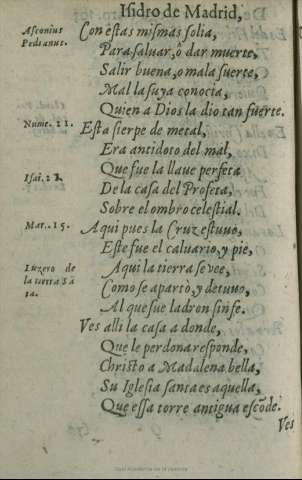 Isidro de Madrid,
Asconius
Pedianus.
Con estas mismas solia,
Para saluar, ô dar muerte,
Salir buena, o mala suerte,
Mal la suya conocia,
Quien a Dios la dio tan fuerte.
Nume. 21.
Esta sierpe de metal,
Era antidoto del mal,
Isai. 22.
Que fue la llaue perfeta
De la casa del Profeta,
Sobre el ombro celestial.
Mar. 15.
Aqui pues la Cruz estuuo,
Este fue el caluario, y pie,
Luzero de
la tierra Sã
ta.
Aqui la tierra se vee,
Como se apartò, y detuuo,
Al que fue ladron sin fe.
Ves alli la casa a donde,
Que le perdona responde,
Christo a Madalena bella,
Su Iglesia santa es aquella,
Que essa torre antigua escõde.
Ves